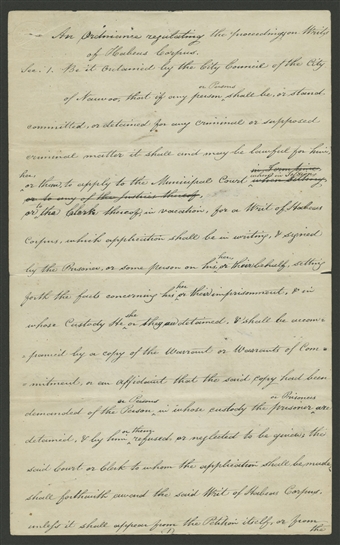 An Ordinance regulating the proceeding on Writs
of Habeas Corpus.
Sec. 1. Be it Ordained by the City Council of the City
or Persons
of Nauvoo, that if any person, shall be, or stand
committed, or detained for any criminal or supposed
criminal matter it shall and may be lawful for him,
her,
or them, to apply to the Municipal Court, when sitting,
or to any of the Justices thereof,
or to the Clerk thereof, in vacation, for a Writ of Habeas
Corpus, which application shall be in writing, & signed
her,
by the Prisoner, or some person on his, or their behalf, setting
her
forth the facts concerning his, or their imprisonment, & in
she
whose Custody He, or they are detained, & shall be accom-
panied by a copy of the Warrant or Warrants of Com-
mitment, or an affidavit that the said copy had been
or Persons or Prisoners
demanded of the Person, in whose custody the prisoner, are
or them
detained, & by him, refused or neglected to be given; the
said Court or Clerk to whom the application shall be made,
shall forthwith award the said Writ of Habeas Corpus.
unless it shall appear from the Petition itself, or from
the